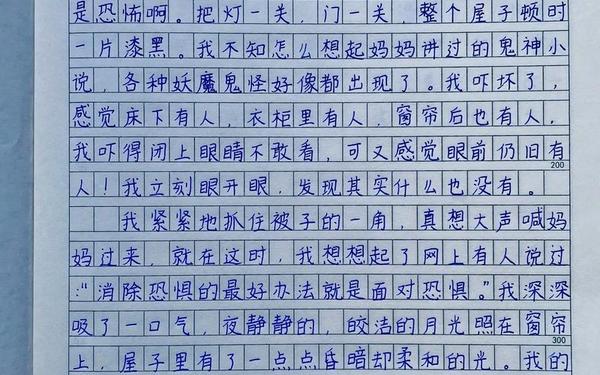 是恐怖啊。把灯一关，门一关，整个屋子顿时
一片漆黑。我不知怎么想起妈妈讲过的鬼神小
说，各种妖魔鬼怪好像都出现了。我吓坏了，
感觉床下有人，衣柜里有人，窗帘后也有人，
我吓得闭上眼睛不敢看，可又感觉眼前仍旧有
200
人！我立刻眼开眼，发现其实什么也没有。
我紧紧地抓住被子的一角，真想大声喊妈
妈过来，就在这时，我想想起了网上有人说过
：“消除恐惧的最好办法就是面对恐惧。”我深深
吸了一口气，夜静静的，皎洁的月光照在窗帘
300
上，屋子里有了一点点昏暗却柔和的光。我的